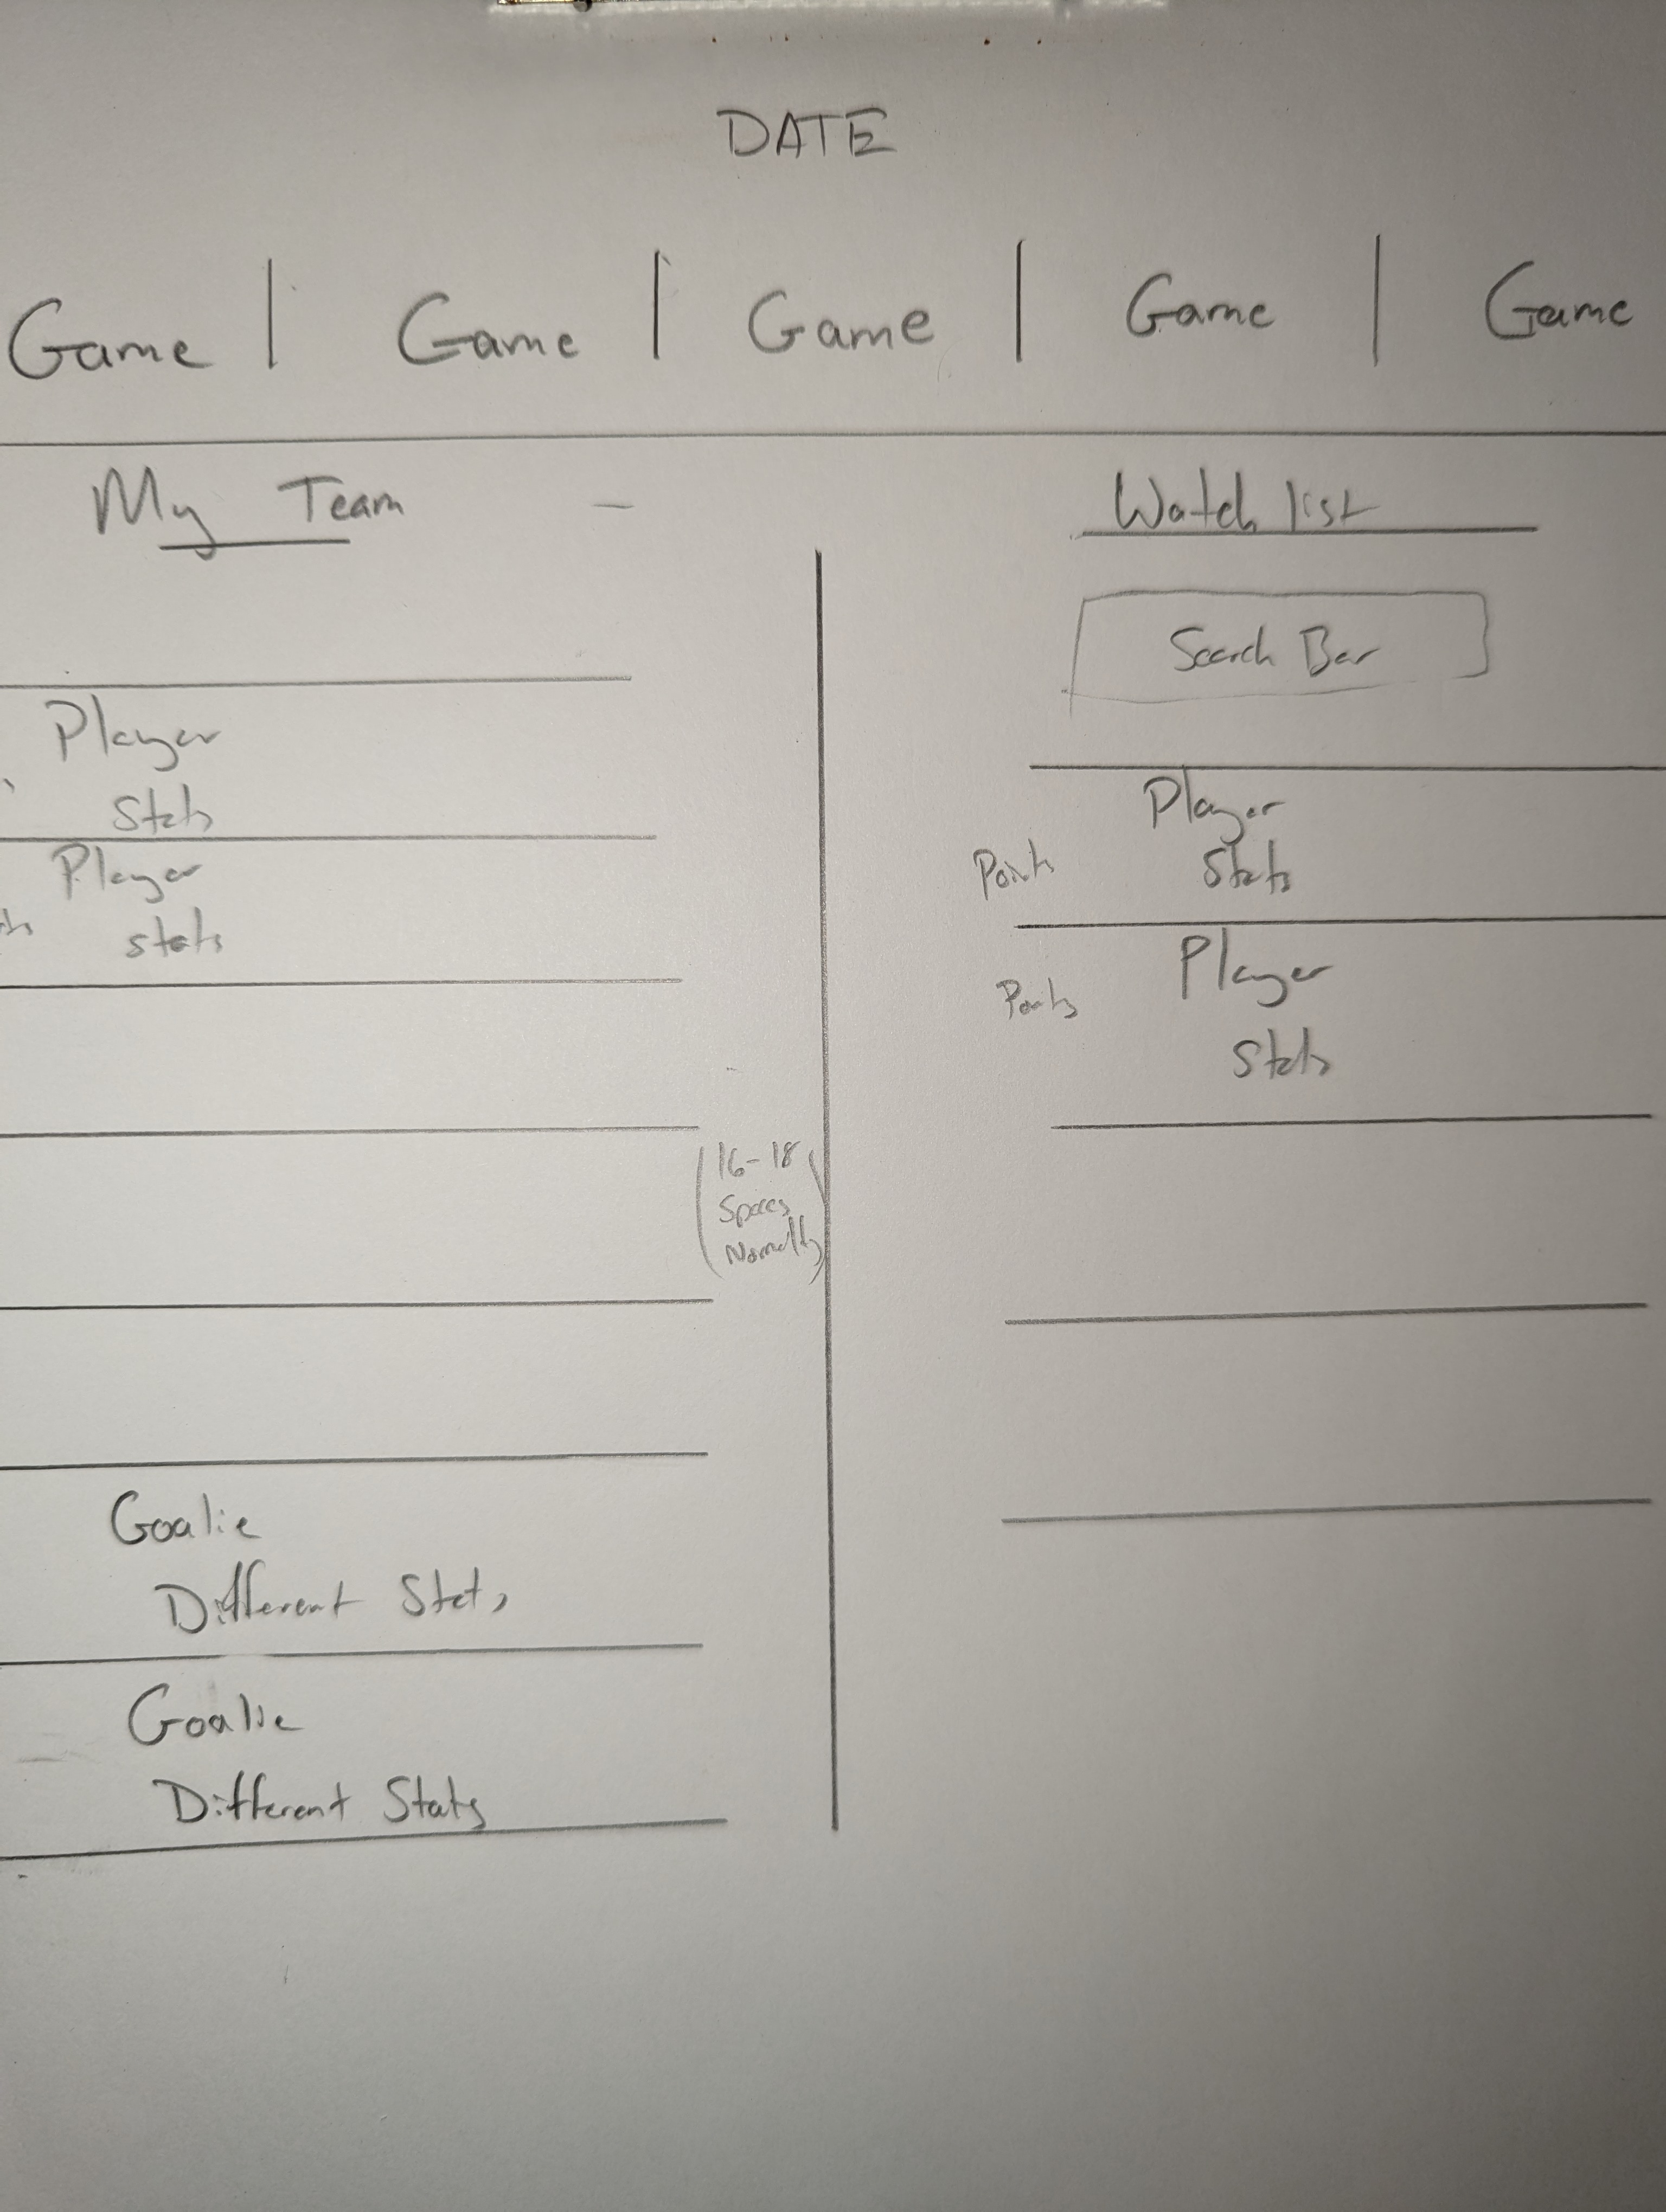 DATE
Game | Game | Game | Game | Game
My Team
Player
Stats
Player
stats
(16-18
Spaces
Normally)
Goalie
Different Stats
Goalie
Different Stats
Watch list
Search Bar
Player
Points Stats
Player
Points
Stats